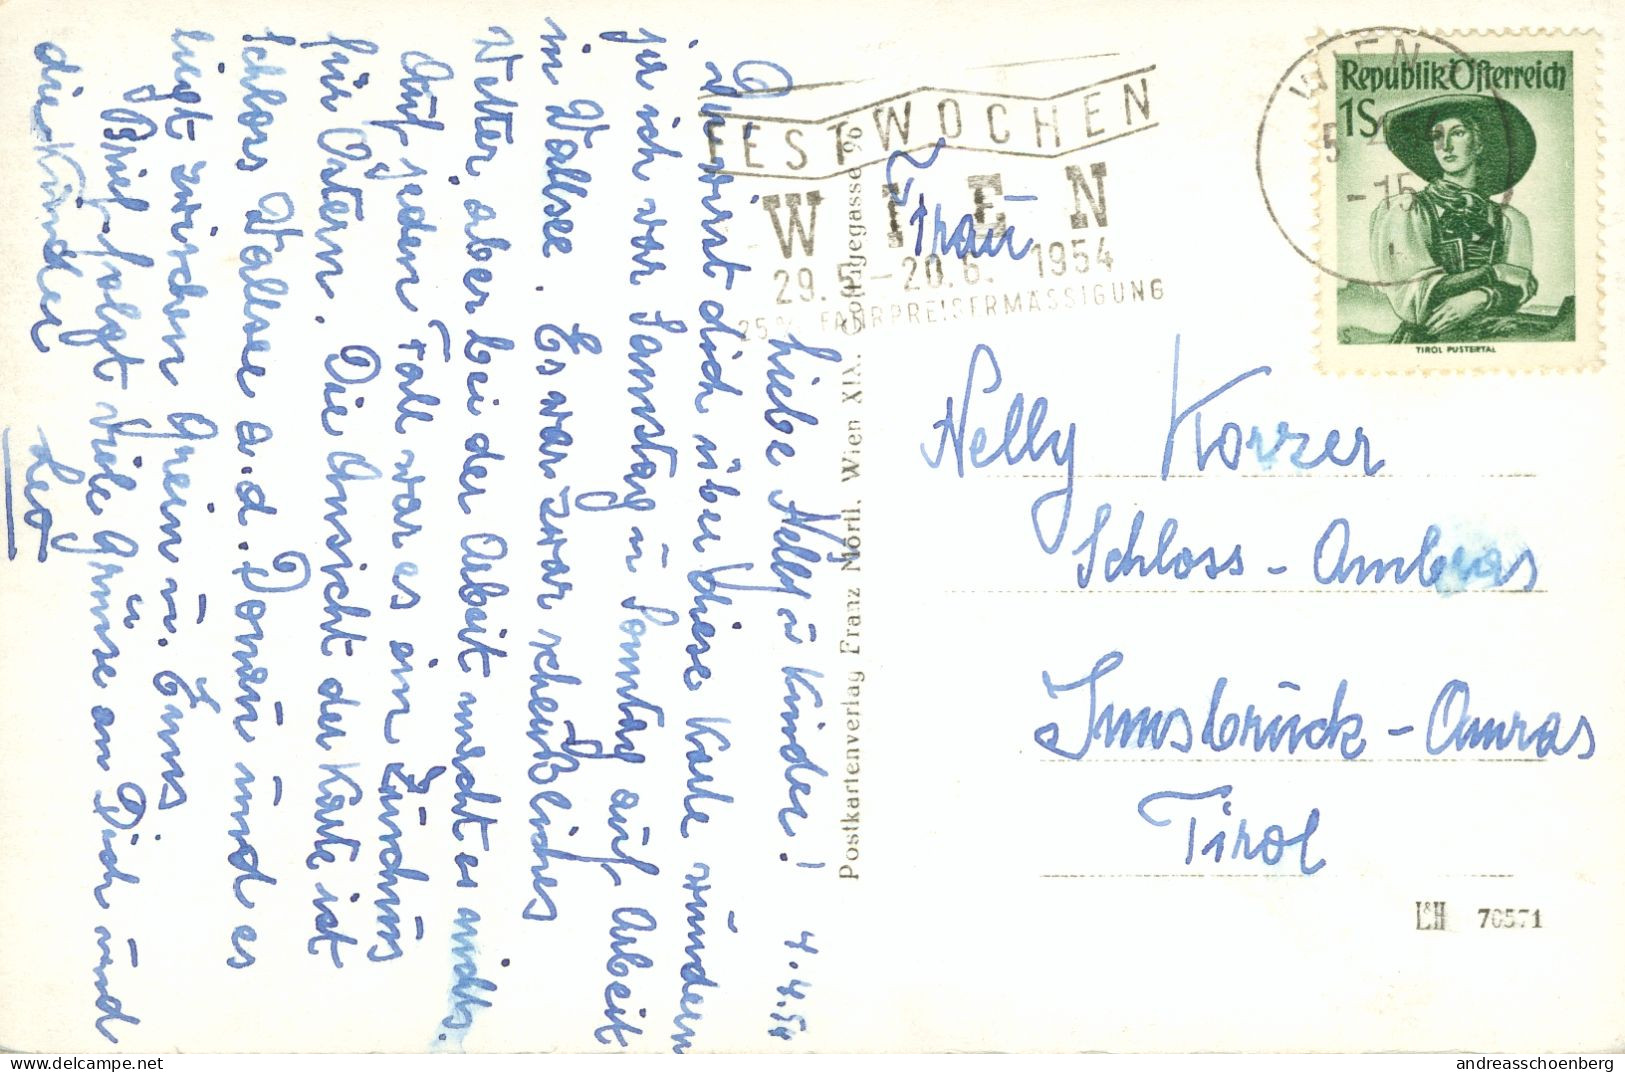 4.4.54
Liebe Nelly u Kinder!
Du wirst dich über diese Karte wundern
ja ich war Samstag u Sonntag auf Arbeit
in Wallsee. Es war zwar scheußliches
Wetter, aber bei der Arbeit macht es nichts.
Auf jeden Fall war es ein Zuschuss
für Ostern. Die Ansicht der Karte ist
Schloss Wallsee a.d. Donau und es
liegt zwischen Grein u. Enns
Brief folgt viele Grüsse an Dich und
die Kinder
Leo
Postkartenverlag Franz Mörtl, Wien XIX. Cottagegasse 96
FESTWOCHEN
WIEN
29.5.–20.6. 1954
25% FAHRPREISERMÄSSIGUNG
WIEN
Republik Österreich
1S
TIROL PUSTERTAL
Frau
Nelly Korzer
Schloss - Ambras
Innsbruck - Amras
Tirol
L&H 70571
www.delcampe.net
andreasschoenberg